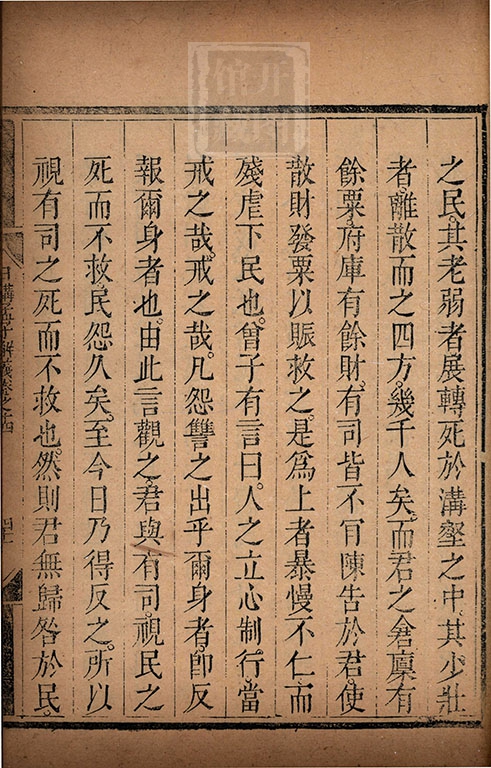 之民。其老弱者展轉死於溝壑之中。其少壯
者。離散而之四方。幾千人矣。而君之倉廩有
餘粟。府庫有餘財。有司皆不肯陳告於君。使
散財發粟以賑救之。是爲上者暴慢不仁而
殘虐下民也。曾子有言曰。人之立心制行。當
戒之哉。戒之哉。凡怨讐之出乎爾身者。卽反
報爾身者也。由此言觀之。君與有司。視民之
死而不救。民怨久矣。至今日乃得反之。所以
視有司之死而不救也。然則君無歸咎於民。
日講孟子解義卷之四